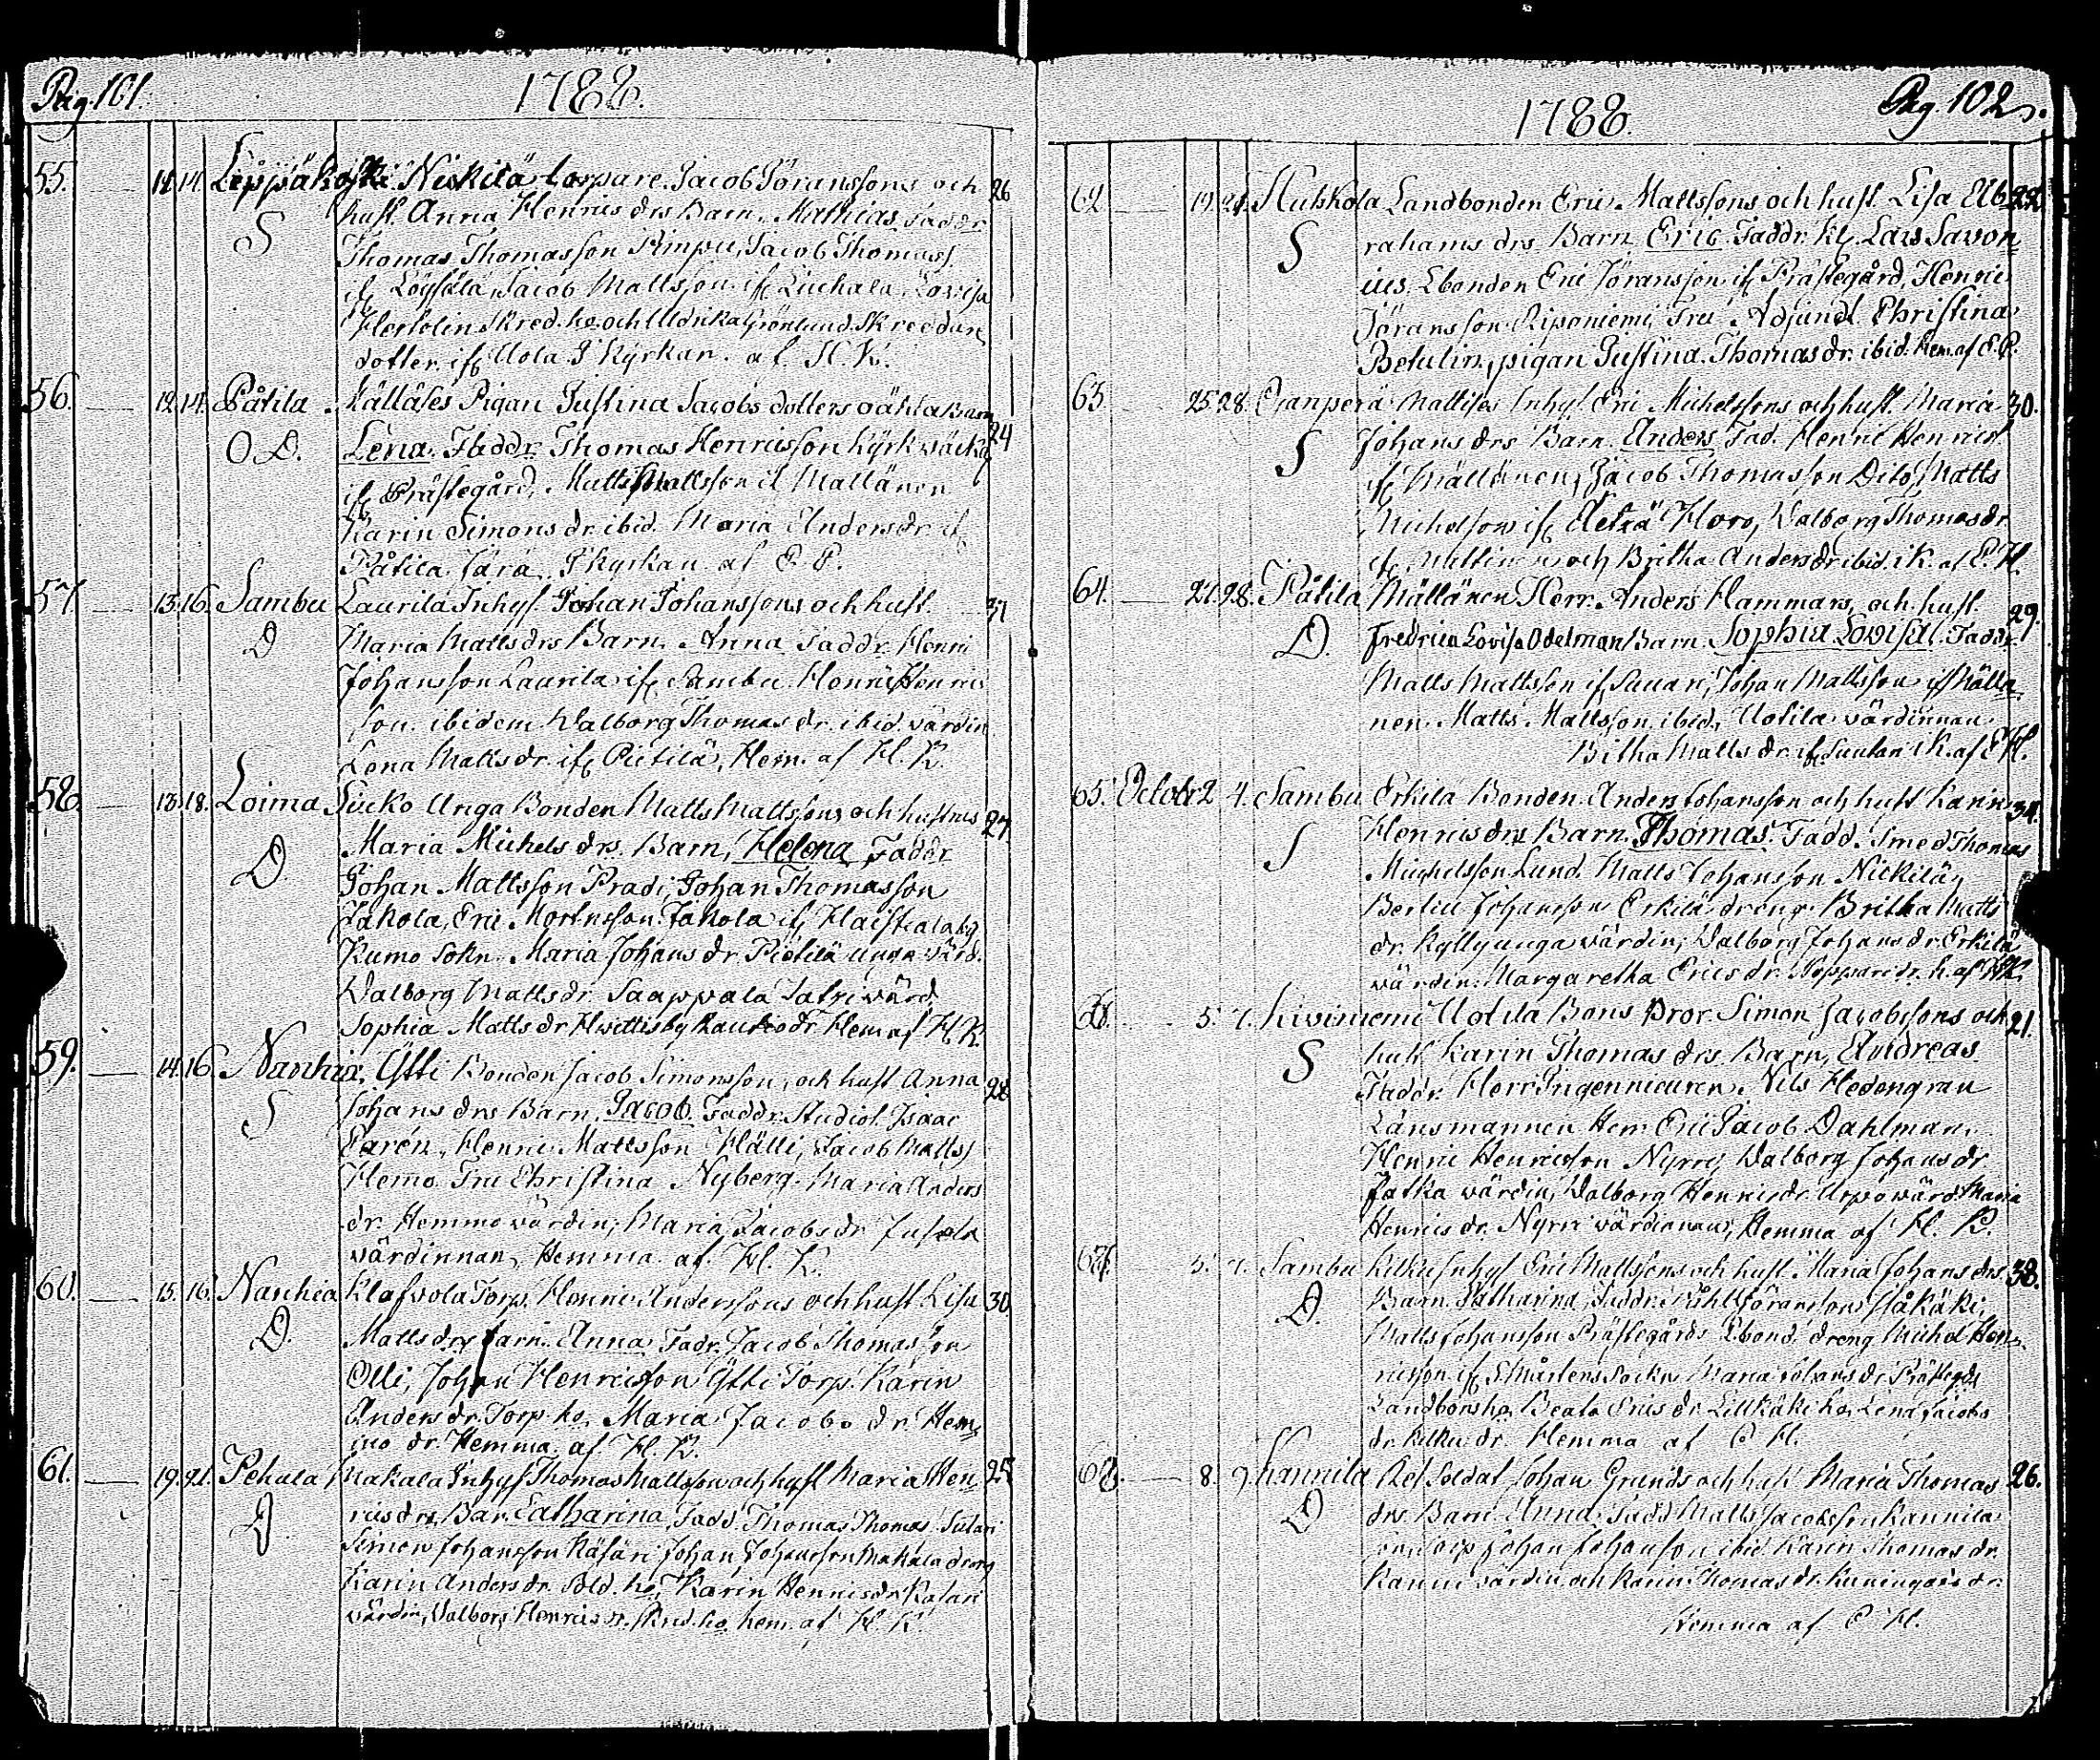 Pag. 101.
1788.
55. 12. 14. Leppäkoski Nickilä torpare Jacob Jöranssons och 26
S hust. Anna Henrics drs Barn. Mathias Faddr
Thomas Thomasson Pimpu, Jacob Thomass.
if Löysälä, Jacob Mattsson if Liuhala, Lovisa
skred. ho. och Ulrica Grönlund. Skreddare
dotter if Uola. J Kyrkan. af H. K.
56. 12. 14. Påtila Källäses Pigan Justina Jacobs dotters oäkta Barn 24
O D. Lena. Faddr. Thomas Henricsson Kyrkwäck.
if Prästegård, Matts Mattsson if Mällänen
Karin Simons dr. ibid. Maria Anders dr. if
Påtila J Kyrkan af E. P.
57. 13. 16. Sambu Laurila Inhys. Johan Johanssons och hust. 37
D Maria Matts drs Barn. Anna Faddr. Henric
Johansson Laurila if Sambu. Henric Henrics
son. ibidem. Walborg Thomas dr. ibid. värdin
Lena Matts dr. if Pietilä, Hem. af H. K.
58. 13. 18. Loima Sucko Unga Bonden Matts Mattssons och hustrus 27.
D. Maria Michels drs. Barn, Helena Faddr
Johan Mattsson Pradi, Johan Thomasson
Jakola, Eric Mortensson Jakola if Haistiala by
Kumo Sokn. Maria Johans dr. Pietilä unga värd.
Walborg Matts dr. Saappala värd.
Sophia Matts dr Hwittisby dr. Hem af H. K.
59. 14. 16. Nanhia, Ylli Bonden Jacob Simonsson, och hust Anna 28
S Johans drs Barn. Jacob. Faddr. Studios. Isaac
Henric Mattsson Hälli, Jacob Matts)
Hemmo Fru Christina Nyberg. Maria Anders
dr. Hemmo värdin; Maria Jacobs dr
värdinnan, Hemma. af. H. K.
60. 15. 16. Nanhia Torp. Henric Anderssons och hust Lisa 30
D. Matts drs barn. Anna Fadr. Jacob Thomasson
Olli, Johan Henricsson Ylli Torp. Karin
Anders dr. Torp. ho. Maria Jacobs dr. Hem
mo dr. Hemma. af H. K.
61. 19. 21. Pehula Makala Inhys Thomas Mattsson och hust Maria Hen 25
D rics drs Bar. Catharina, Fadd. Thomas Thomas
Simon Johansson Johan Johansson Makala dreng
Karin Anders dr. Sold. ho; Karin Henrics dr.
värdin, Walborg Henrics dr. skred. ho. hem. af H. K.
Pag. 102.
1788.
62 19. 21. Huhkola Landbonden Eric Mattssons och hust. Lisa Ab 22
S rahams drs Barn Eric. Faddr. Kl. Lars Savon
ius. Lbonden Eric Jöransson if Prästegård, Henric
Jöransson Riponiemi, Fru Adjunct. Christina
Betulin, pigan Justina Thomas dr. ibid. Hem. af E. P.
63 25. 28. Ojanperä Mattises Inhys. Eric Michelssons och hust. Maria 30.
S Johans drs Barn. Anders Fad. Henric Henrics
if Mällänen, Jacob Thomasson Dito, Matts
Michelsson if Walborg Thomas dr.
if och Britha Anders dr ibid. i K. af E. H.
64. 27. 28. Påtila Mällänen Herr. Anders Hammars, och hust. 29.
D. Fredrica Lovisa Odelman Barn. Sophia Lovisa. Faddr.
Matts Mattsson if Johan Mattsson if Mällä
nen. Matts Mattsson ibid. Uotila värdinnan
Britha Matts dr. if i K. af E H.
65. Octobr 2 4. Sambu Erkila Bonden Anders Johansson och hust Karin 34.
S Henrics drs Barn. Thomas. Fadd. Smed Thomas
Michelsson Lund. Matts Johansson Nickilä,
Bertill Johansson Erkilä dreng. Britha Matts
dr. unga värdin, Walborg Johans dr. Erkila
värdin. Margaretha Erics dr. h. af HK
66. 5. 7. Kiviniemi Uotila Bons Bror. Simon Jacobssons och 21.
S hust Karin Thomas drs. Barn, Andreas
Faddr. Herr Ingennieuren. Nils Hedengran
Länsmannen Herr Eric Jacob Dahlman.
Henric Henricsson Nyrry Walborg Johans dr
värdin, Walborg Henrics dr. värd. Maria
Henrics dr. Nyrri värdinnan, Hemma af H. K.
67. 5. 7. Sambu Inhys Eric Mattssons och hust. Maria Johans drs. 38.
D. Barn. Catharina, Faddr. Påhl Jöransson
Matts Johansson Prästegårds Lbond. dreng Michel Hen
ricsson if S. Mårtens Sockn Maria Johans dr Prästegds
Landbonsho. Beata Erics dr. ho. Lena Jacobs
dr. dr. Hemma af E H.
68. 8. 9. Kannila Res. Soldat. Johan Grunds och hust Maria Thomas 26.
D drs. Barn. Anna, Fadd Matts Jacobsson Kannila
Johan Johansson ibid. Karin Thomas dr.
värdin och Karin Thomas dr. dr.
Hemma af E H.